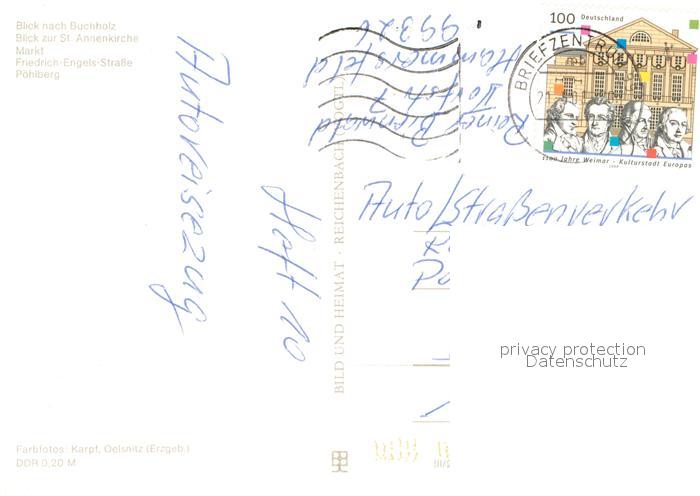 Blick nach Buchholz
Blick zur St. Annenkirche
Markt
Friedrich-Engels-Straße
Pöhlberg
Autoreisezug
Heft 10
Farbfotos: Karpf, Oelsnitz (Erzgeb.)
DDR 0,20 M
BILD UND HEIMAT · REICHENBACH (VOGTL)
Rainer
Dorfstr. 7
99326
100 Deutschland
1100 Jahre Weimar - Kulturstadt Europas
BRIEFZENTRUM
Auto/Straßenverkehr
privacy protection
Datenschutz